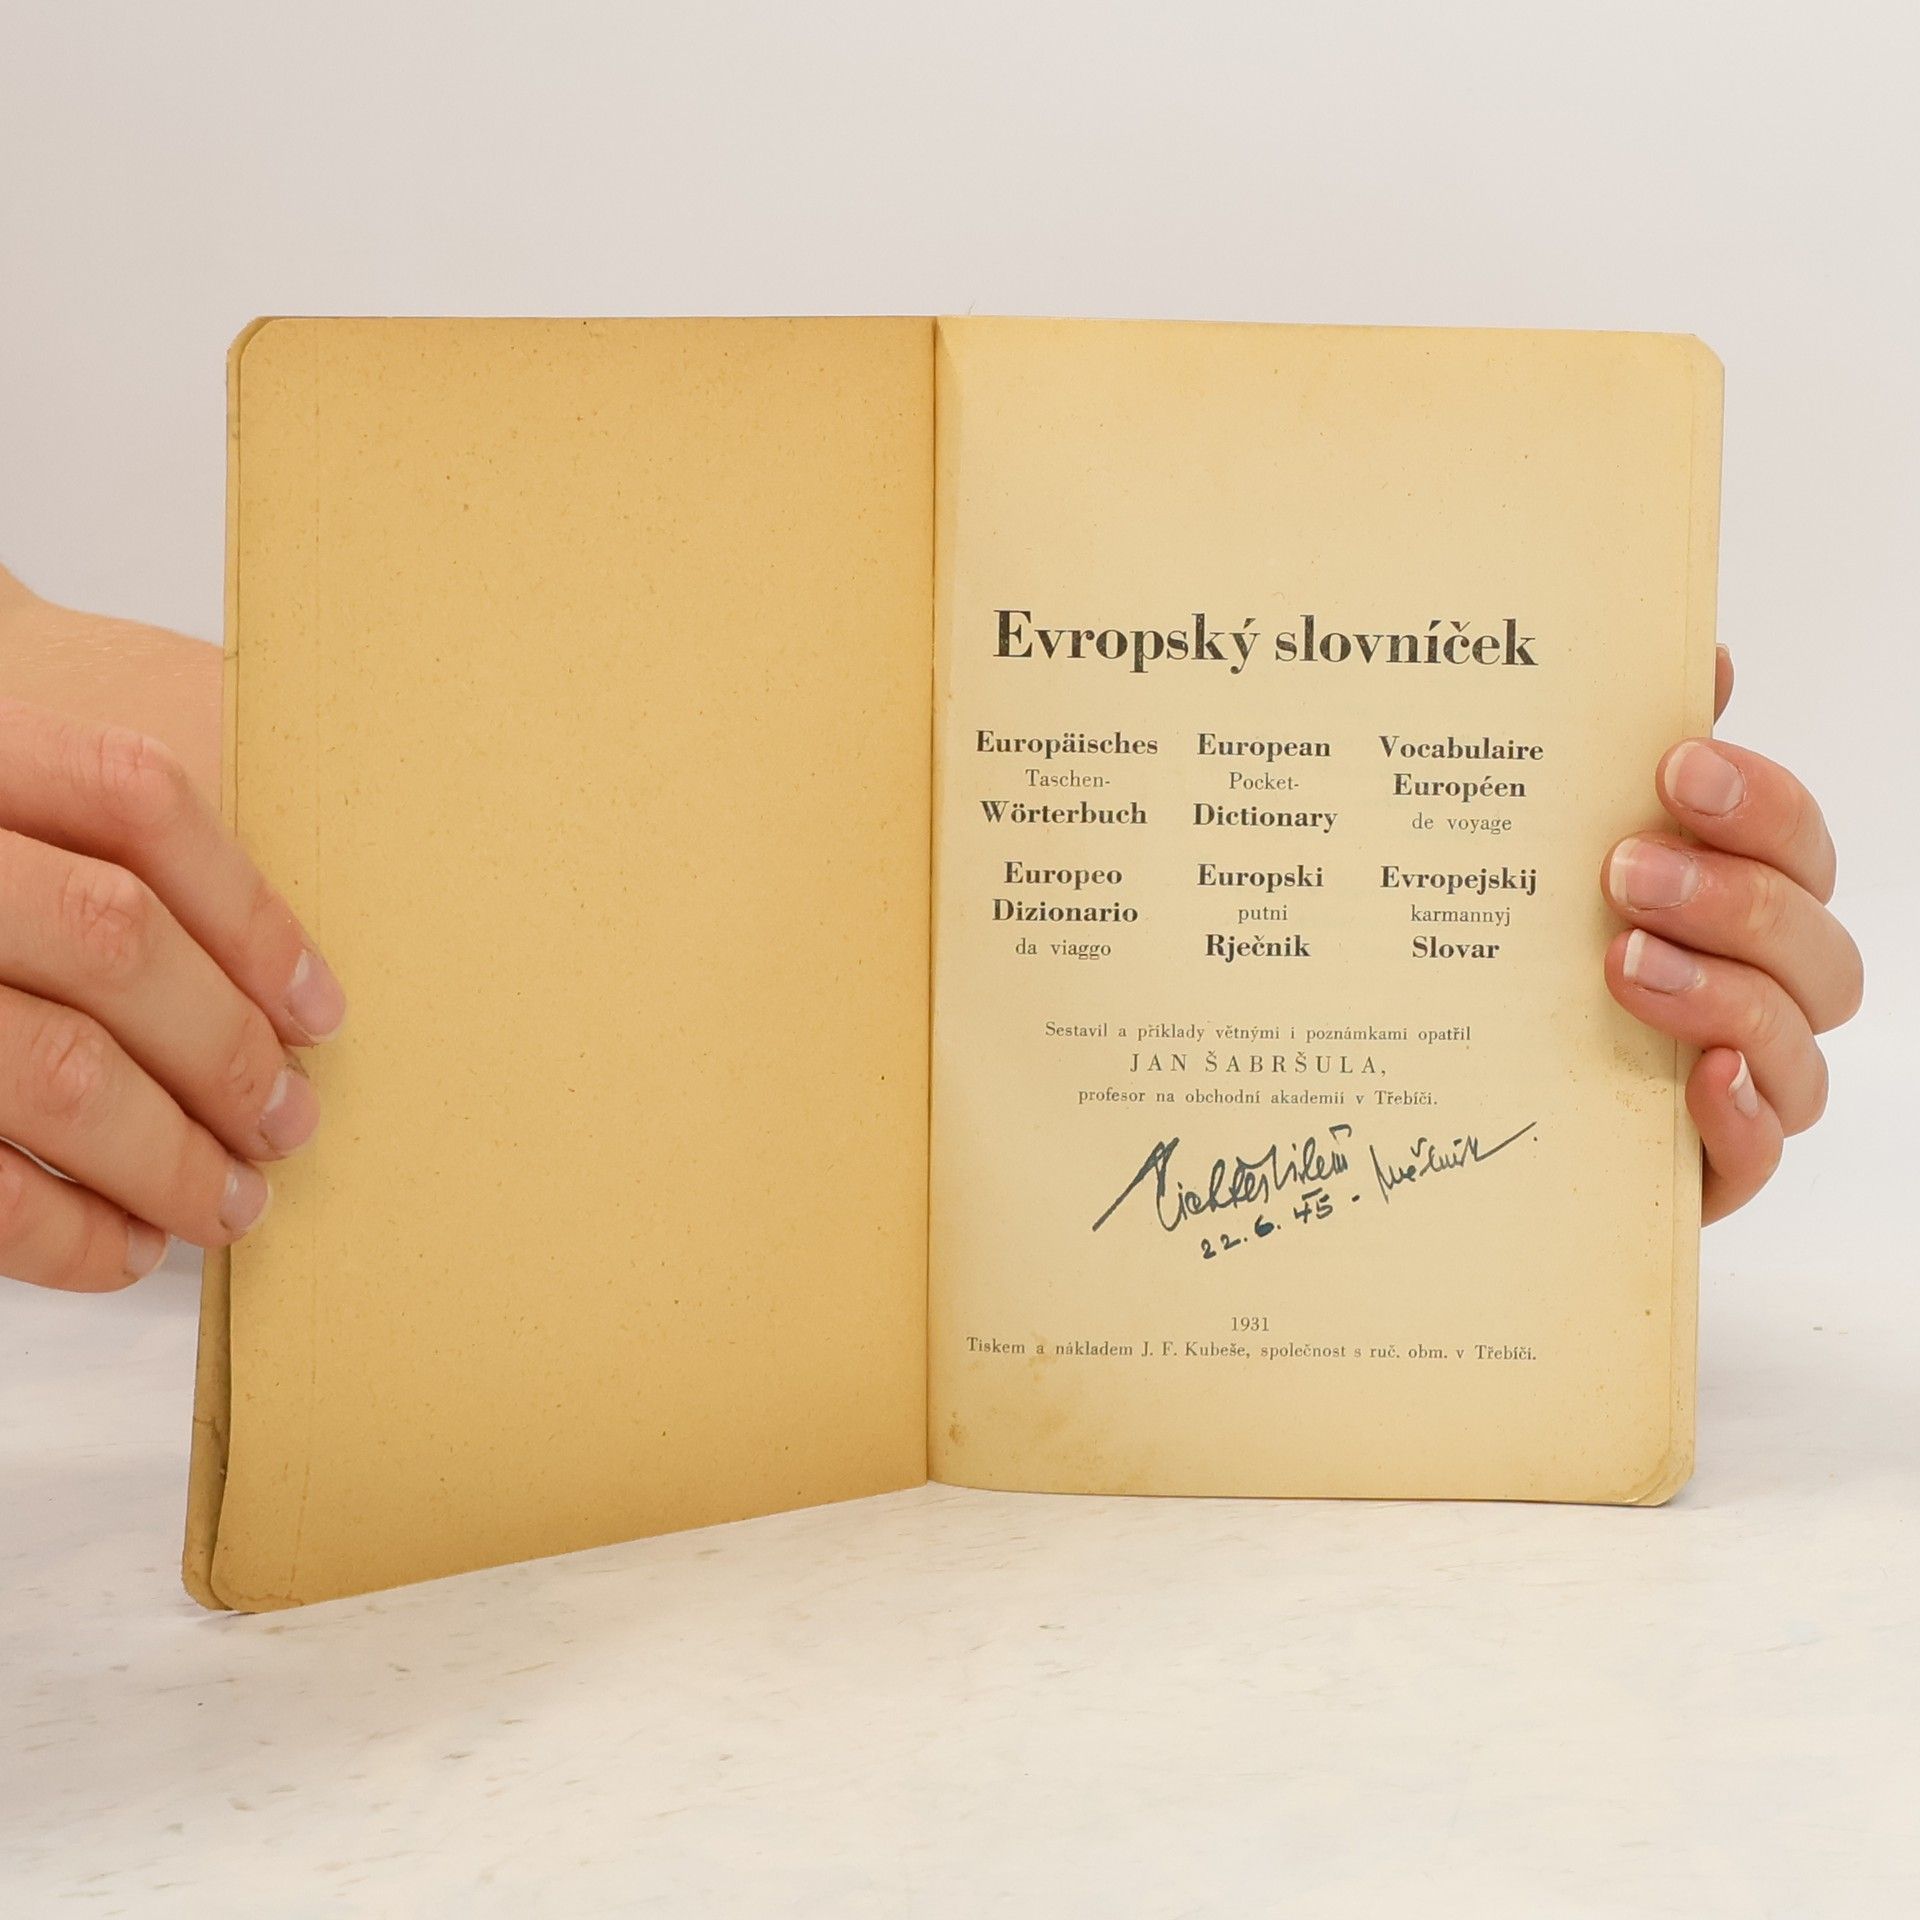 Evropský slovníček
Europäisches
Taschen-
Wörterbuch
European
Pocket-
Dictionary
Vocabulaire
Européen
de voyage
Europeo
Dizionario
da viaggo
Europski
putni
Rječnik
Evropejskij
karmannyj
Slovar
Sestavil a příklady větnými i poznámkami opatřil
JAN ŠABRŠULA,
profesor na obchodní akademii v Třebíči.
Mělník
22. 6. 45 -
1931
Tiskem a nákladem J. F. Kubeše, společnost s ruč. obm. v Třebíči.